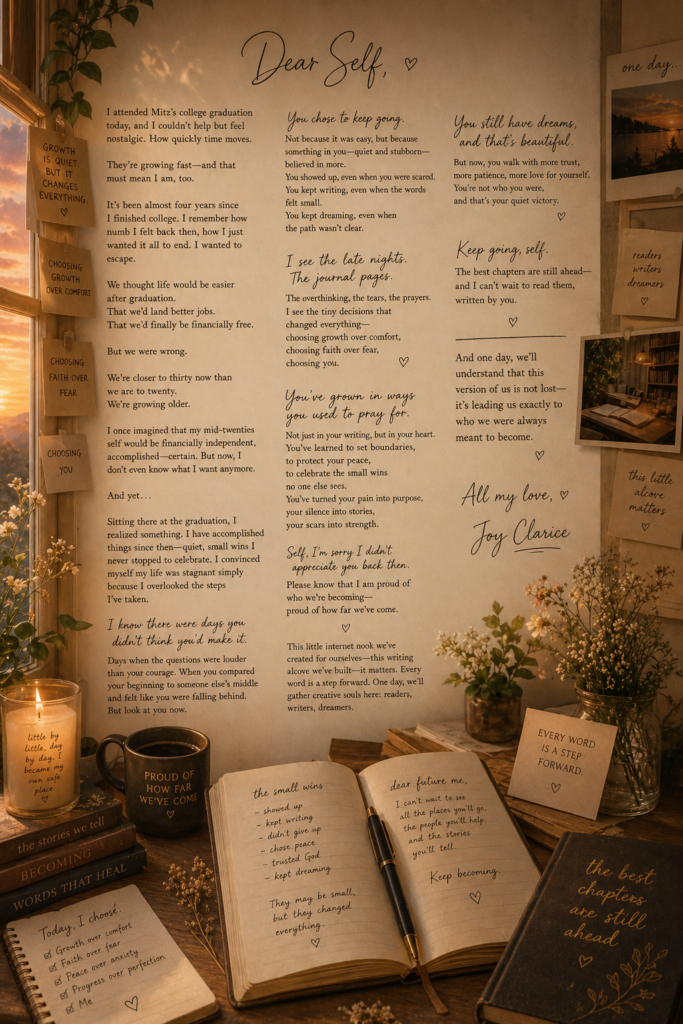 Dear Self, ♡
I attended Mitz's college graduation
today, and I couldn't help but feel
nostalgic. How quickly time moves.
They're growing fast—and that
must mean I am, too.
It's been almost four years since
I finished college. I remember how
numb I felt back then, how I just
wanted it all to end. I wanted to
escape.
We thought life would be easier
after graduation.
That we'd land better jobs.
That we'd finally be financially free.
But we were wrong.
We're closer to thirty now than
we are to twenty.
We're growing older.
I once imagined that my mid-twenties
self would be financially independent,
accomplished—certain. But now, I
don't even know what I want anymore.
And yet...
Sitting there at the graduation, I
realized something. I have accomplished
things since then—quiet, small wins I
never stopped to celebrate. I convinced
myself my life was stagnant simply
because I overlooked the steps
I've taken.
I know there were days you
didn't think you'd make it.
Days when the questions were louder
than your courage. When you compared
your beginning to someone else's middle
and felt like you were falling behind.
But look at you now.
You chose to keep going.
Not because it was easy, but because
something in you—quiet and stubborn—
believed in more.
You showed up, even when you were scared.
You kept writing, even when the words
felt small.
You kept dreaming, even when
the path wasn't clear.
I see the late nights.
The journal pages.
The overthinking, the tears, the prayers.
I see the tiny decisions that
changed everything—
choosing growth over comfort,
choosing faith over fear,
choosing you. ♡
You've grown in ways
you used to pray for.
Not just in your writing, but in your heart.
You've learned to set boundaries,
to protect your peace,
to celebrate the small wins
no one else sees.
You've turned your pain into purpose,
your silence into stories,
your scars into strength.
Self, I'm sorry I didn't
appreciate you back then.
Please know that I am proud of
who we're becoming—
proud of how far we've come.
♡
This little internet nook we've
created for ourselves—this writing
alcove we've built—it matters. Every
word is a step forward. One day, we'll
gather creative souls here: readers,
writers, dreamers.
You still have dreams,
and that's beautiful.
But now, you walk with more trust,
more patience, more love for yourself.
You're not who you were,
and that's your quiet victory.
♡
Keep going, self.
The best chapters are still ahead—
and I can't wait to read them,
written by you.
♡
And one day, we'll
understand that this
version of us is not lost—
it's leading us exactly to
who we were always
meant to become.
♡
All my love, ♡
Joy Clarice
GROWTH
IS QUIET,
BUT IT
CHANGES
EVERYTHING.
♡
CHOOSING
GROWTH
OVER COMFORT
CHOOSING
FAITH OVER
FEAR
CHOOSING
YOU
♡
one day...
readers
writers
dreamers
♡
this little
alcove
matters
♡
little by
little, day
by day, I
became my
own safe
place
♡
PROUD OF
HOW FAR
WE'VE COME
♡
the stories we tell
BECOMING
WORDS THAT HEAL
Today, I choose:
☑ Growth over comfort
☑ Faith over fear
☑ Peace over anxiety
☑ Progress over perfection
☑ Me
♡
the small wins
- showed up
- kept writing
- didn't give up
- chose peace
- trusted God
- kept dreaming
They may be small,
but they changed
everything.
♡
dear future me,
I can't wait to see
all the places you'll go,
the people you'll help,
and the stories
you'll tell.
Keep becoming.
♡
EVERY WORD
IS A STEP
FORWARD.
♡
the best
chapters
are still
ahead
♡